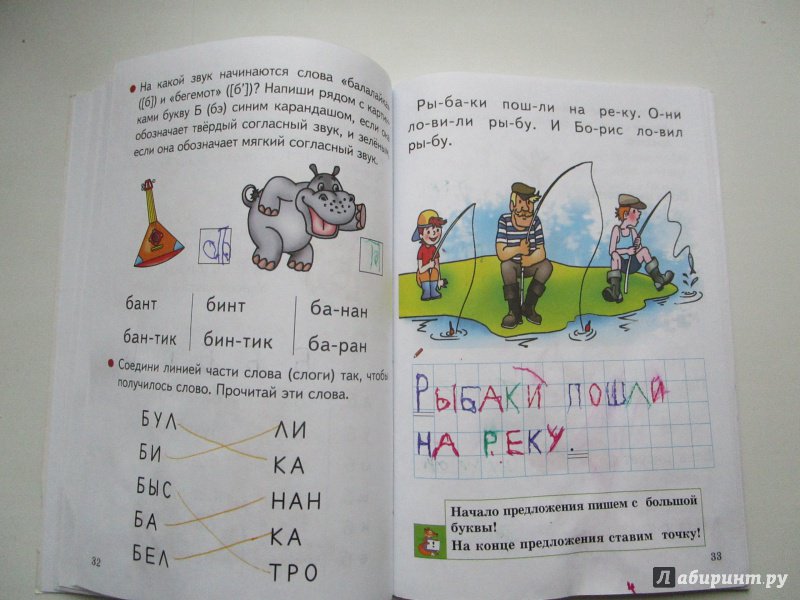 На какой звук начинаются слова «балалайка»
([б]) и «бегемот» ([б'])? Напиши рядом с картин-
ками букву Б (бэ) синим карандашом, если она
обозначает твёрдый согласный звук, и зелёным,
если она обозначает мягкий согласный звук.
бант бинт ба-нан
бан-тик бин-тик ба-ран
Соедини линией части слова (слоги) так, чтобы
получилось слово. Прочитай эти слова.
БУЛ ЛИ
БИ КА
БЫС НАН
БА КА
БЕЛ ТРО
32
Ры-ба-ки пош-ли на ре-ку. О-ни
ло-ви-ли ры-бу. И Бо-рис ло-вил
ры-бу.
РЫБАКИ ПОШЛИ
НА РЕКУ.
Начало предложения пишем с большой
буквы!
На конце предложения ставим точку!
33
Лабиринт.ру